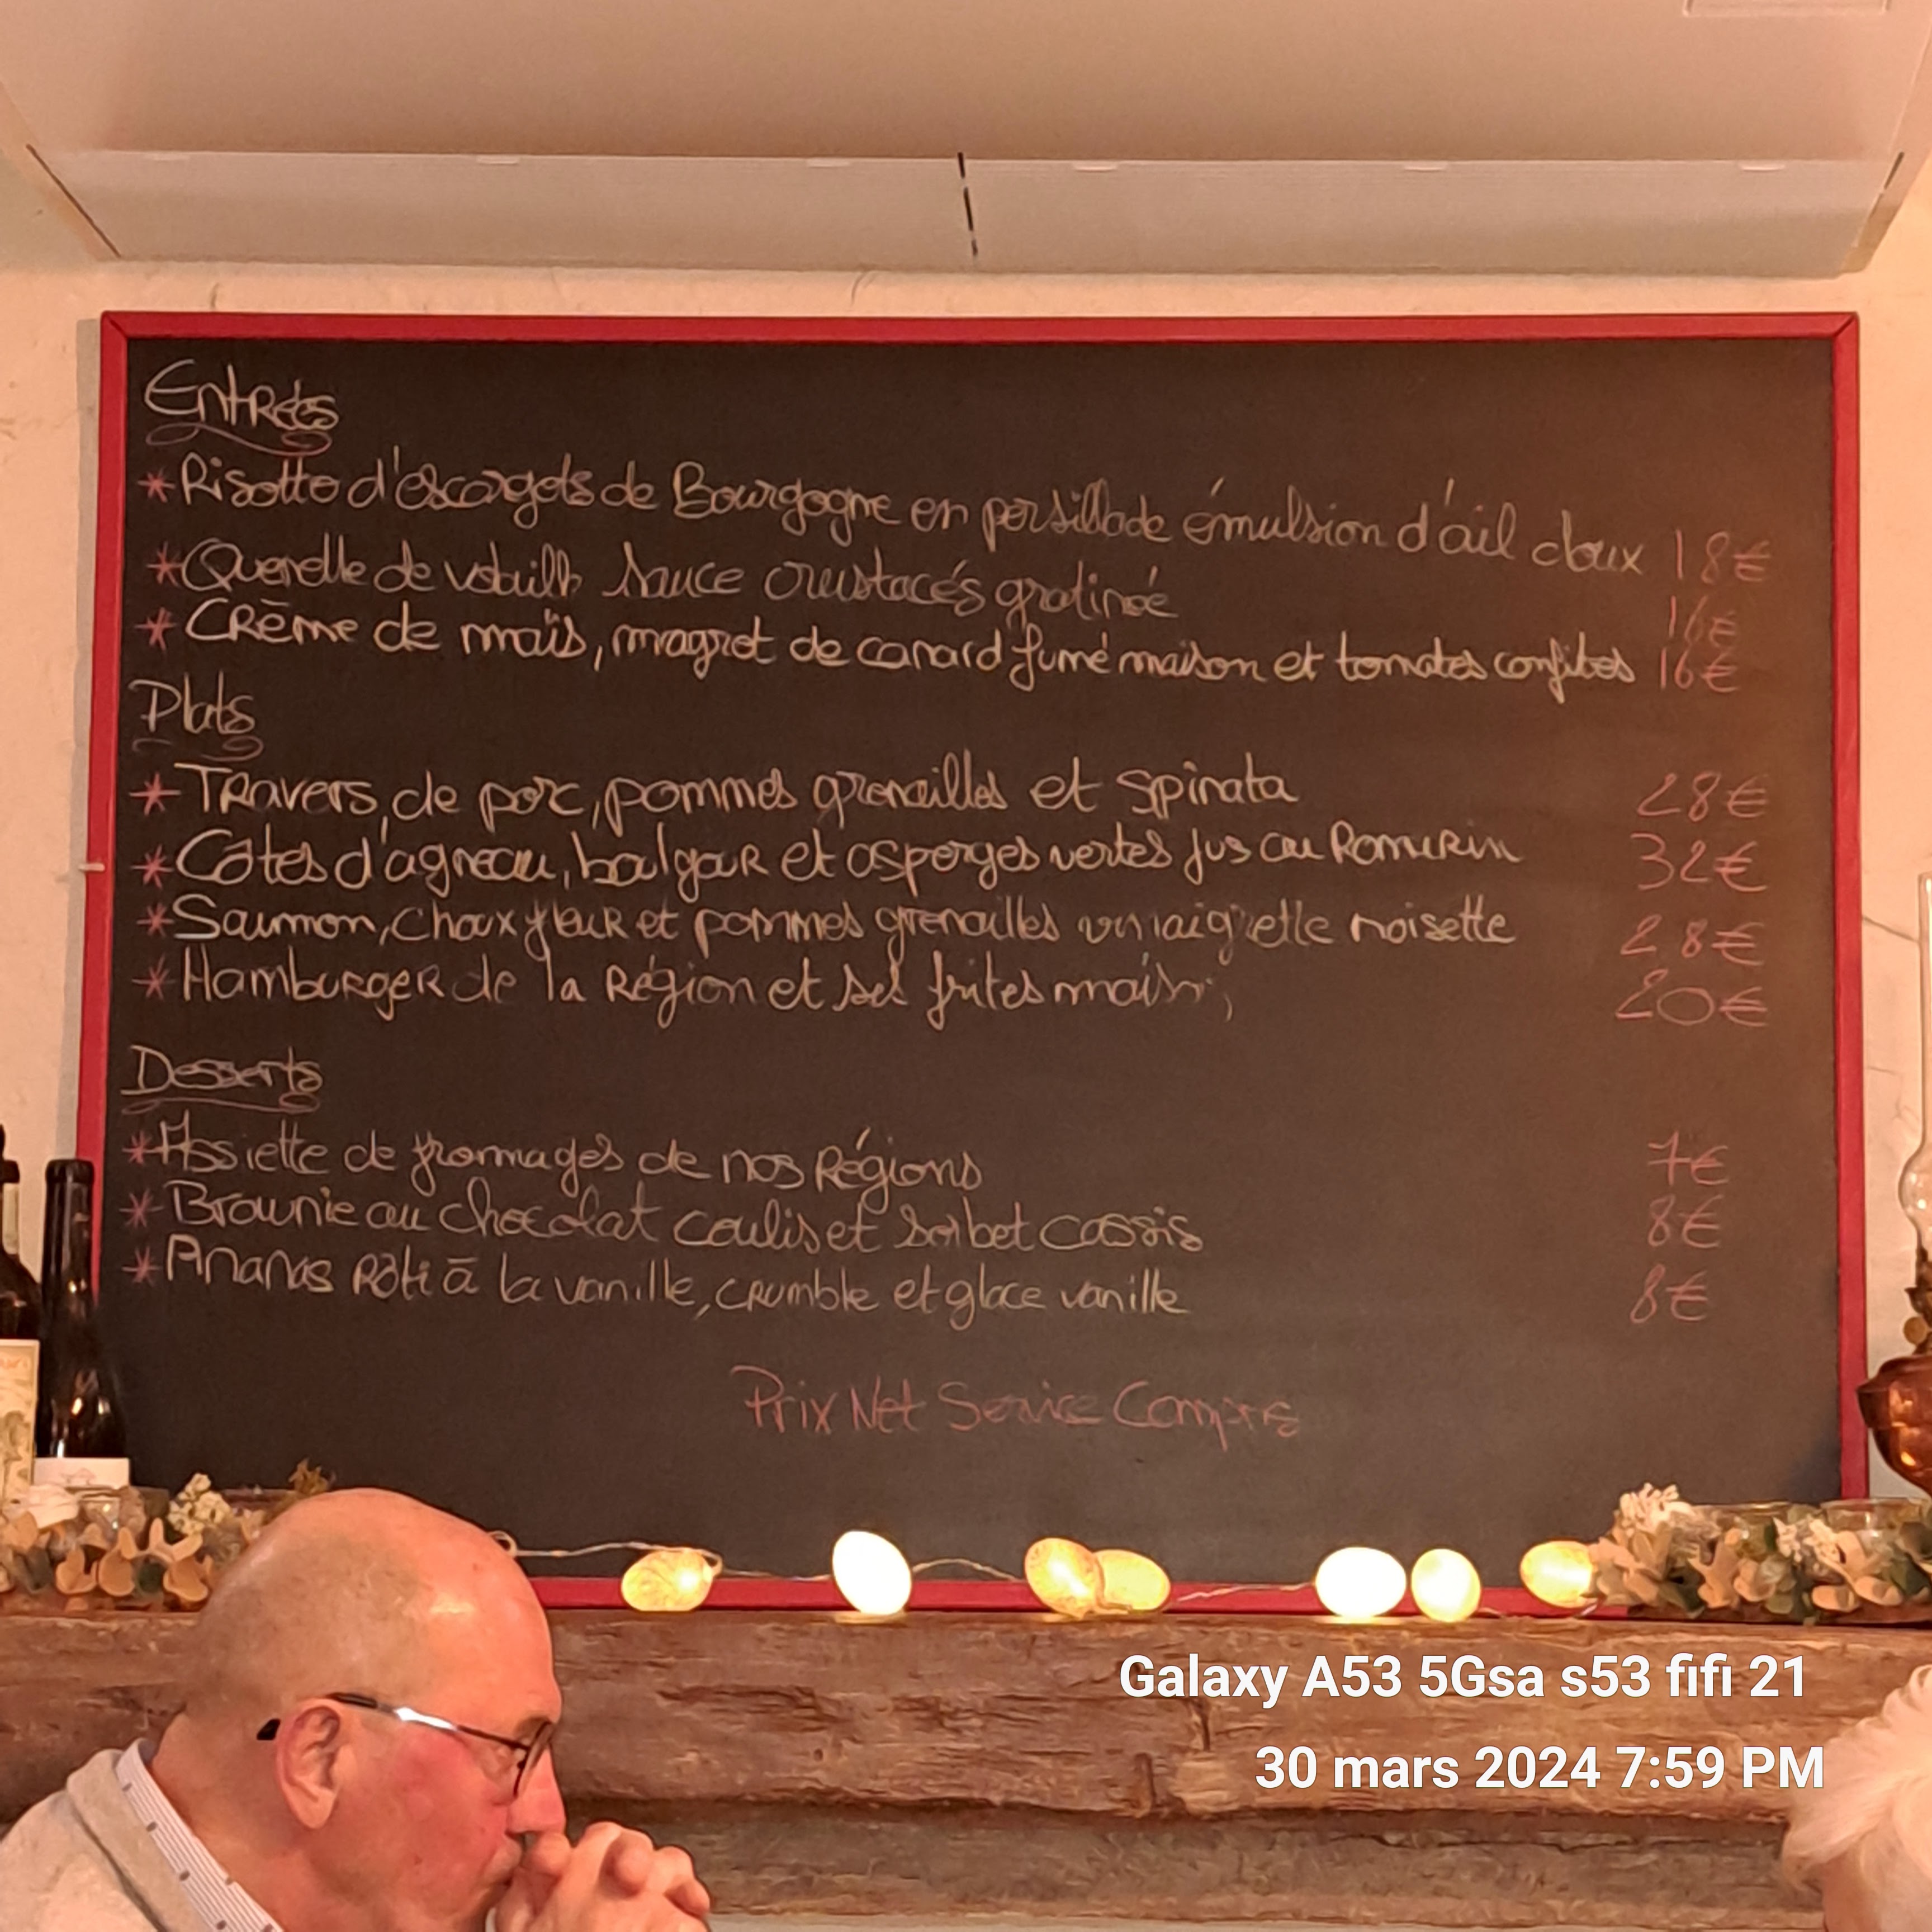 Entrées
* Risotto d'escargots de Bourgogne en persillade émulsion d'ail doux 18€
* Quenelle de volaille sauce crustacés gratinée 16€
* Crème de maïs, magret de canard fumé maison et tomates confites 16€
Plats
* Travers de porc, pommes grenailles et spinata 28€
* Côtes d'agneau, boulgour et asperges vertes jus au Romarin 32€
* Saumon, choux fleur et pommes grenailles vinaigrette noisette 28€
* Hamburger de la Région et ses frites maison 20€
Desserts
* Assiette de fromages de nos Régions 7€
* Brownie au chocolat coulis et sorbet cassis 8€
* Ananas Rôti à la vanille, crumble et glace vanille 8€
Prix Net Service Compris
Galaxy A53 5Gsa s53 fifi 21
30 mars 2024 7:59 PM